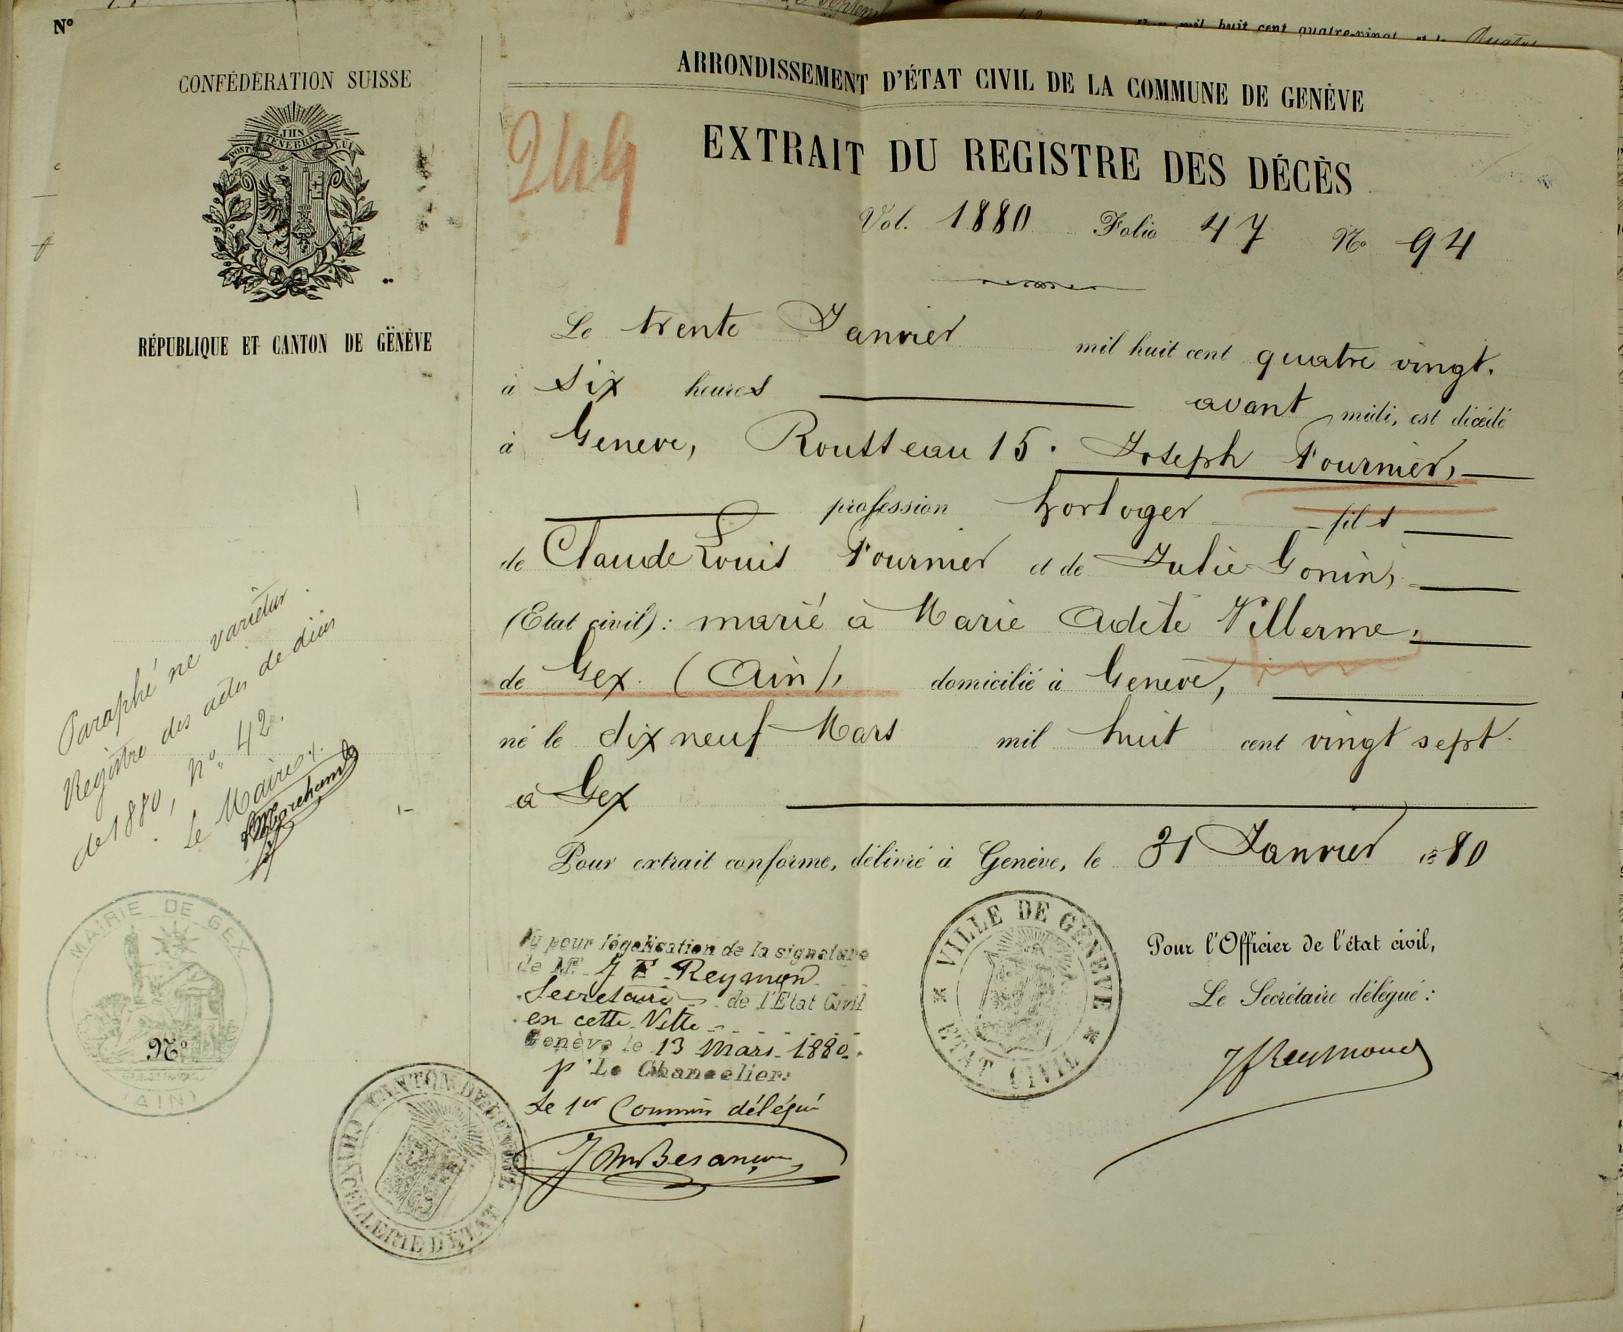 N°
mil huit cent quatre-vingt
CONFÉDÉRATION SUISSE
POST TENEBRAS LUX
JHS
RÉPUBLIQUE ET CANTON DE GENÈVE
ARRONDISSEMENT D'ÉTAT CIVIL DE LA COMMUNE DE GENÈVE
249
EXTRAIT DU REGISTRE DES DÉCÈS
Vol. 1880 Folio 47 No 94
Le trente Janvier mil huit cent quatre vingt.
à six heures avant midi, est décédé
à Genève, Rousseau 15. Joseph Fournier,
profession horloger fils
de Claude Louis Fournier et de Julie Gonin,
(Etat civil): marié à Marie Adèle Villerme,
de Gex (Ain), domicilié à Genève,
né le dix neuf Mars mil huit cent vingt sept
à Gex
Pour extrait conforme, délivré à Genève, le 31 Janvier 1880
Paraphé ne varietur
Registre des actes de décès
de 1880, n° 42.
Le Maire
Marchand
MAIRIE DE GEX
N°
(AIN)
Vu pour légalisation de la signature
de Mr J F Reymond
Secrétaire de l'Etat Civil
en cette Ville
Genève le 13 Mars 1880.
p. Le Chancelier:
Le 1er Commis délégué
J Besançon
CHANCELLERIE D'ÉTAT CANTON DE GENÈVE
VILLE DE GENÈVE
ETAT CIVIL
Pour l'Officier de l'état civil,
Le Secrétaire délégué:
J F Reymond